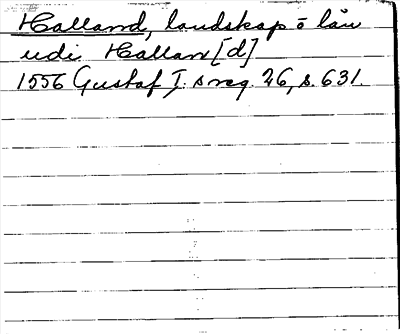 Halland, landskap o län
udi Hallan[d]
1556 Gustaf I:s reg. 26, s. 631.